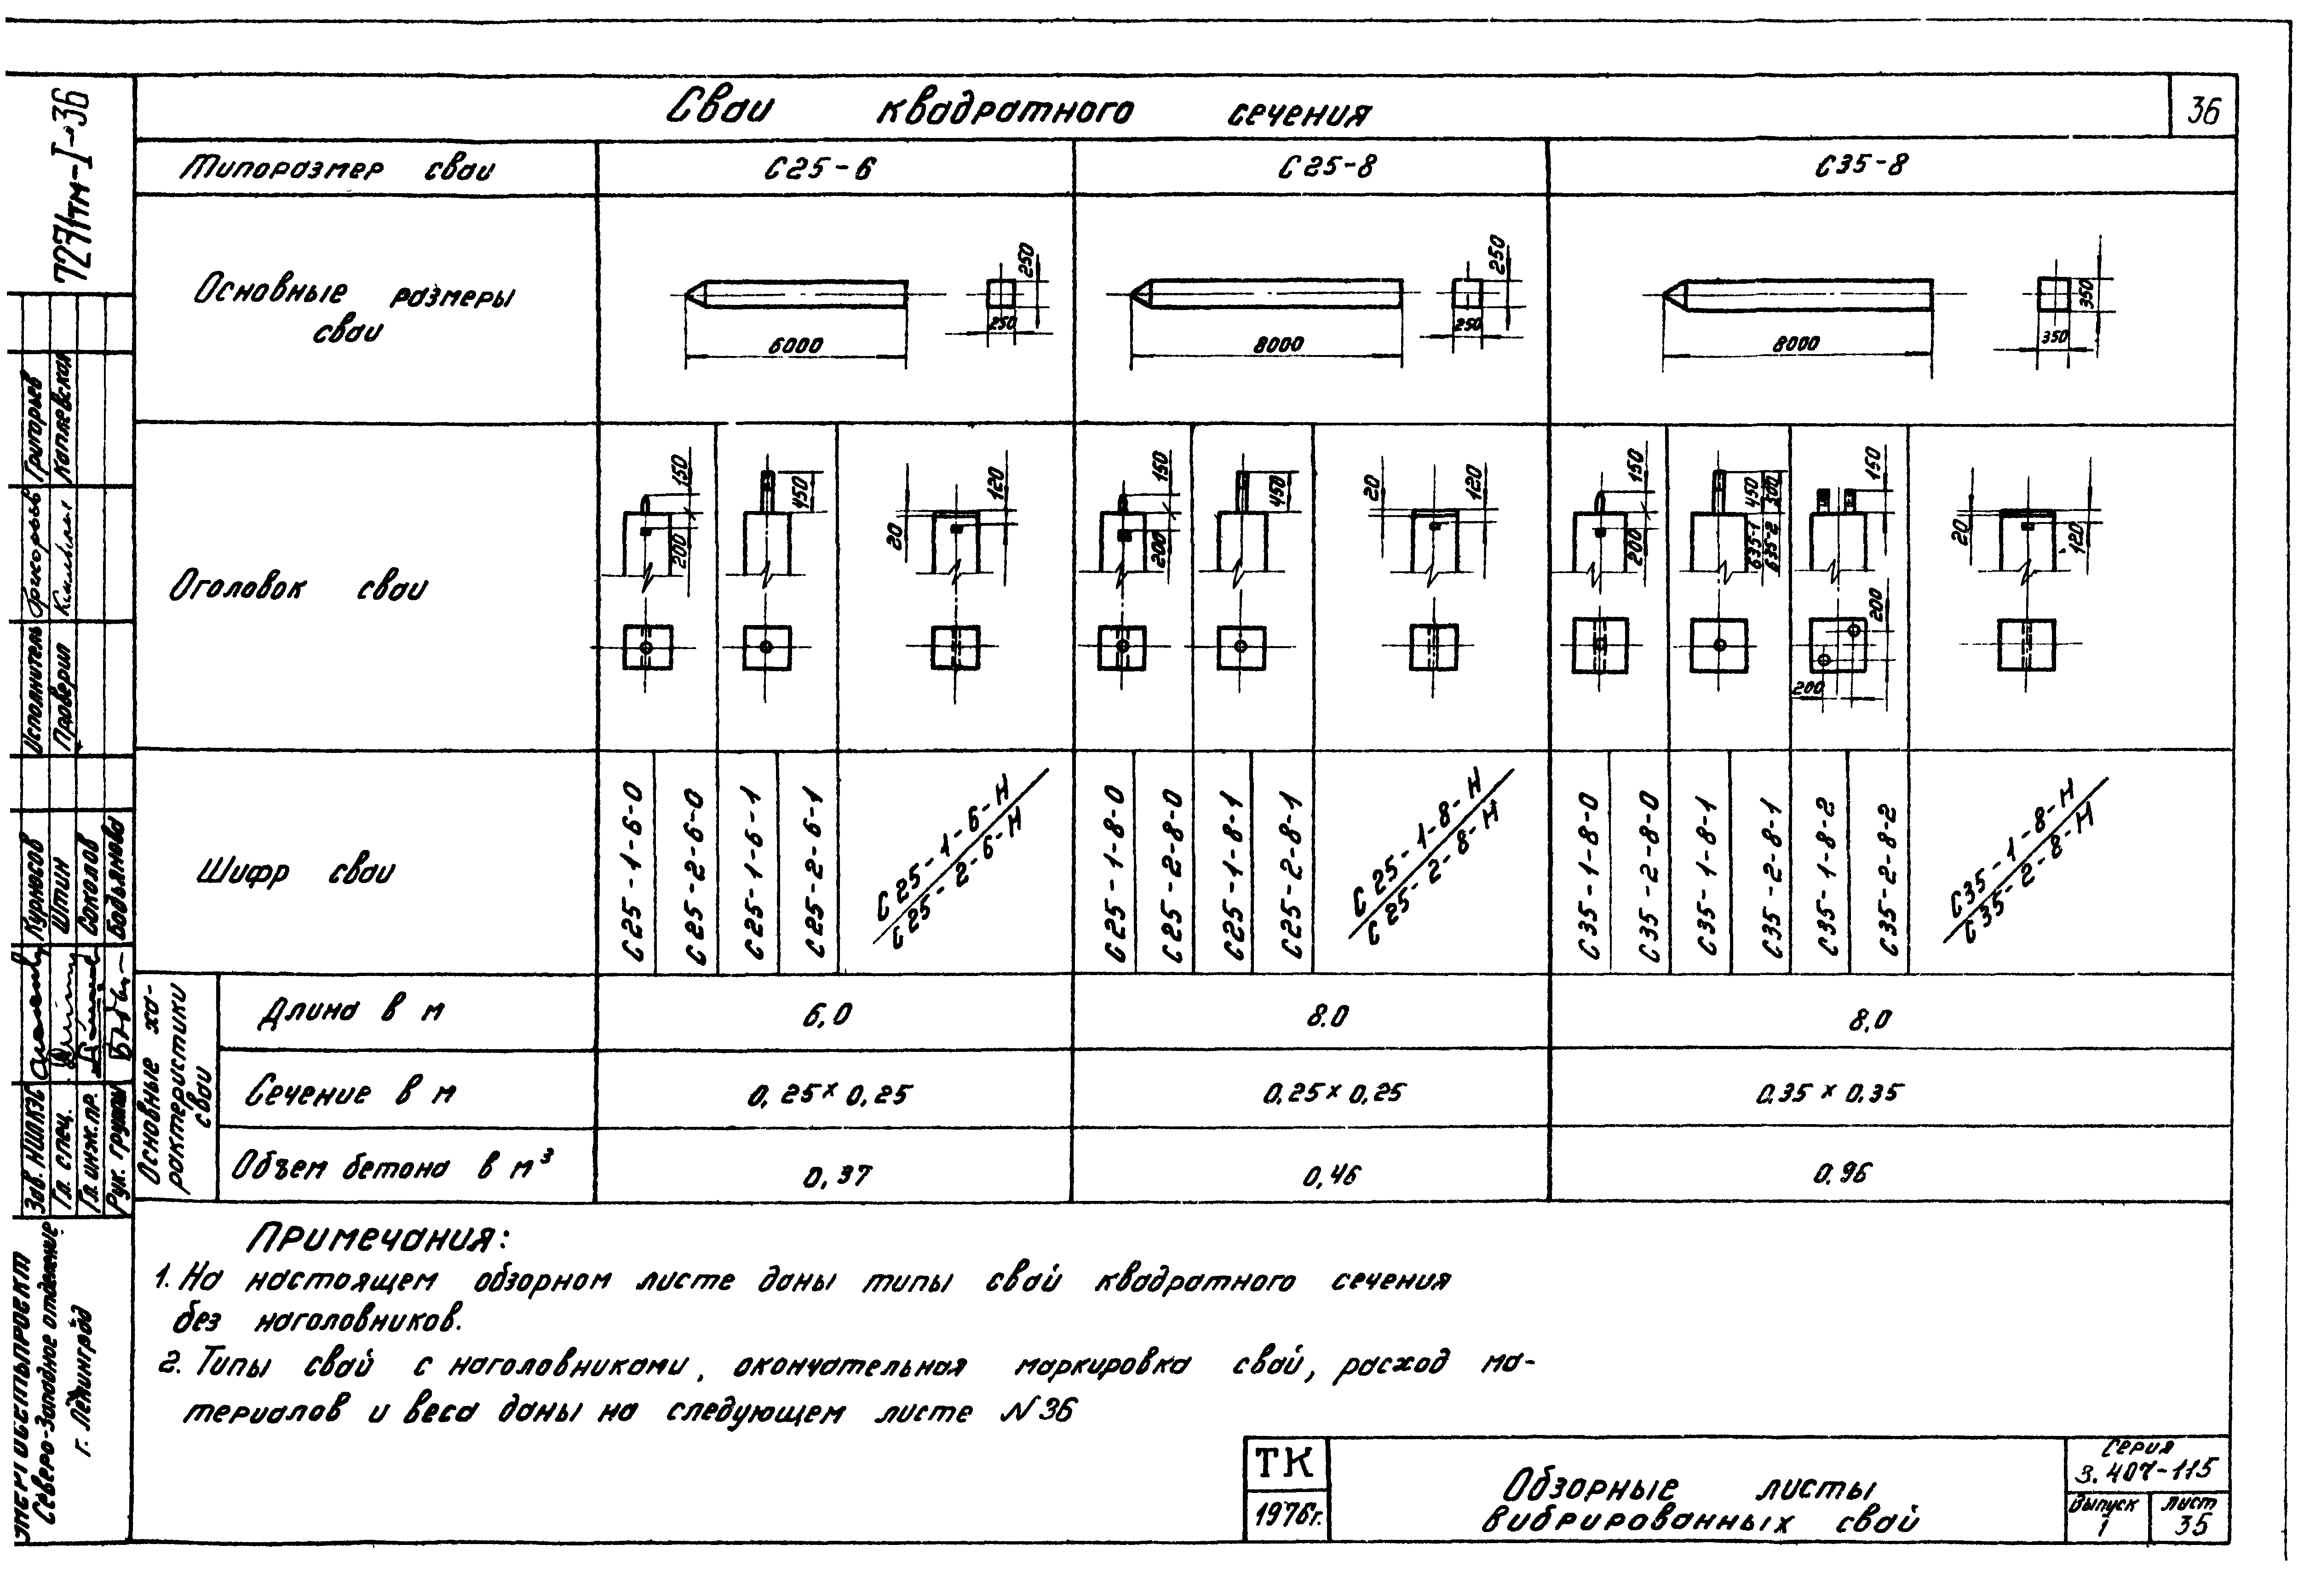 Сваи квадратного сечения
36
Типоразмер сваи
С25-6
С25-8
С35-8
Основные размеры
сваи
6000
250
250
8000
250
250
8000
350
350
Оголовок сваи
150
200
450
20
120
150
200
450
20
120
150
200
450
300
С35-1
С35-2
150
200
200
20
120
Шифр сваи
С25-1-6-0
С25-2-6-0
С25-1-6-1
С25-2-6-1
С25-1-6-Н
С25-2-6-Н
С25-1-8-0
С25-2-8-0
С25-1-8-1
С25-2-8-1
С25-1-8-Н
С25-2-8-Н
С35-1-8-0
С35-2-8-0
С35-1-8-1
С35-2-8-1
С35-1-8-2
С35-2-8-2
С35-1-8-Н
С35-2-8-Н
Основные ха-
рактеристики
сваи
Длина в м
6,0
8.0
8,0
Сечение в м
0,25×0,25
0,25×0,25
0.35×0,35
Объем бетона в м³
0,37
0,46
0.96
Примечания:
1. На настоящем обзорном листе даны типы свай квадратного сечения
без наголовников.
2. Типы свай с наголовниками, окончательная маркировка свай, расход ма-
териалов и веса даны на следующем листе N36
ТК
1976г.
Обзорные листы
вибрированных свай
Серия
3.407-115
Выпуск
1
Лист
35
7271тм-I-36
Исполнитель Григорьев
Проверил Капаевская
Зав. НИЛКЭС Курносов
Гл. спец. Штин
Гл. инж. пр. Соколов
Рук. группы Бодьянова
Энергосетьпроект
Северо-Западное отделение
г. Ленинград